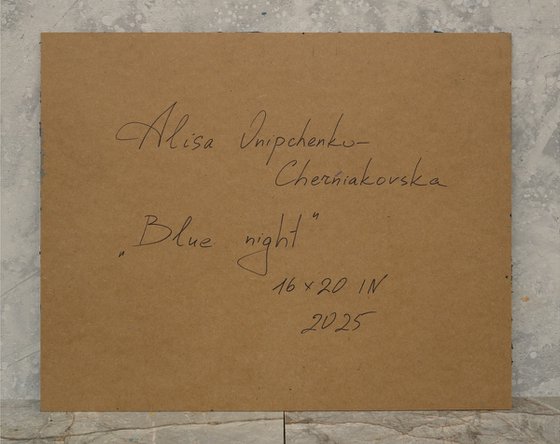 Alisa Onipchenko-
Cherniakovska
„Blue night"
16 x 20 IN
2025